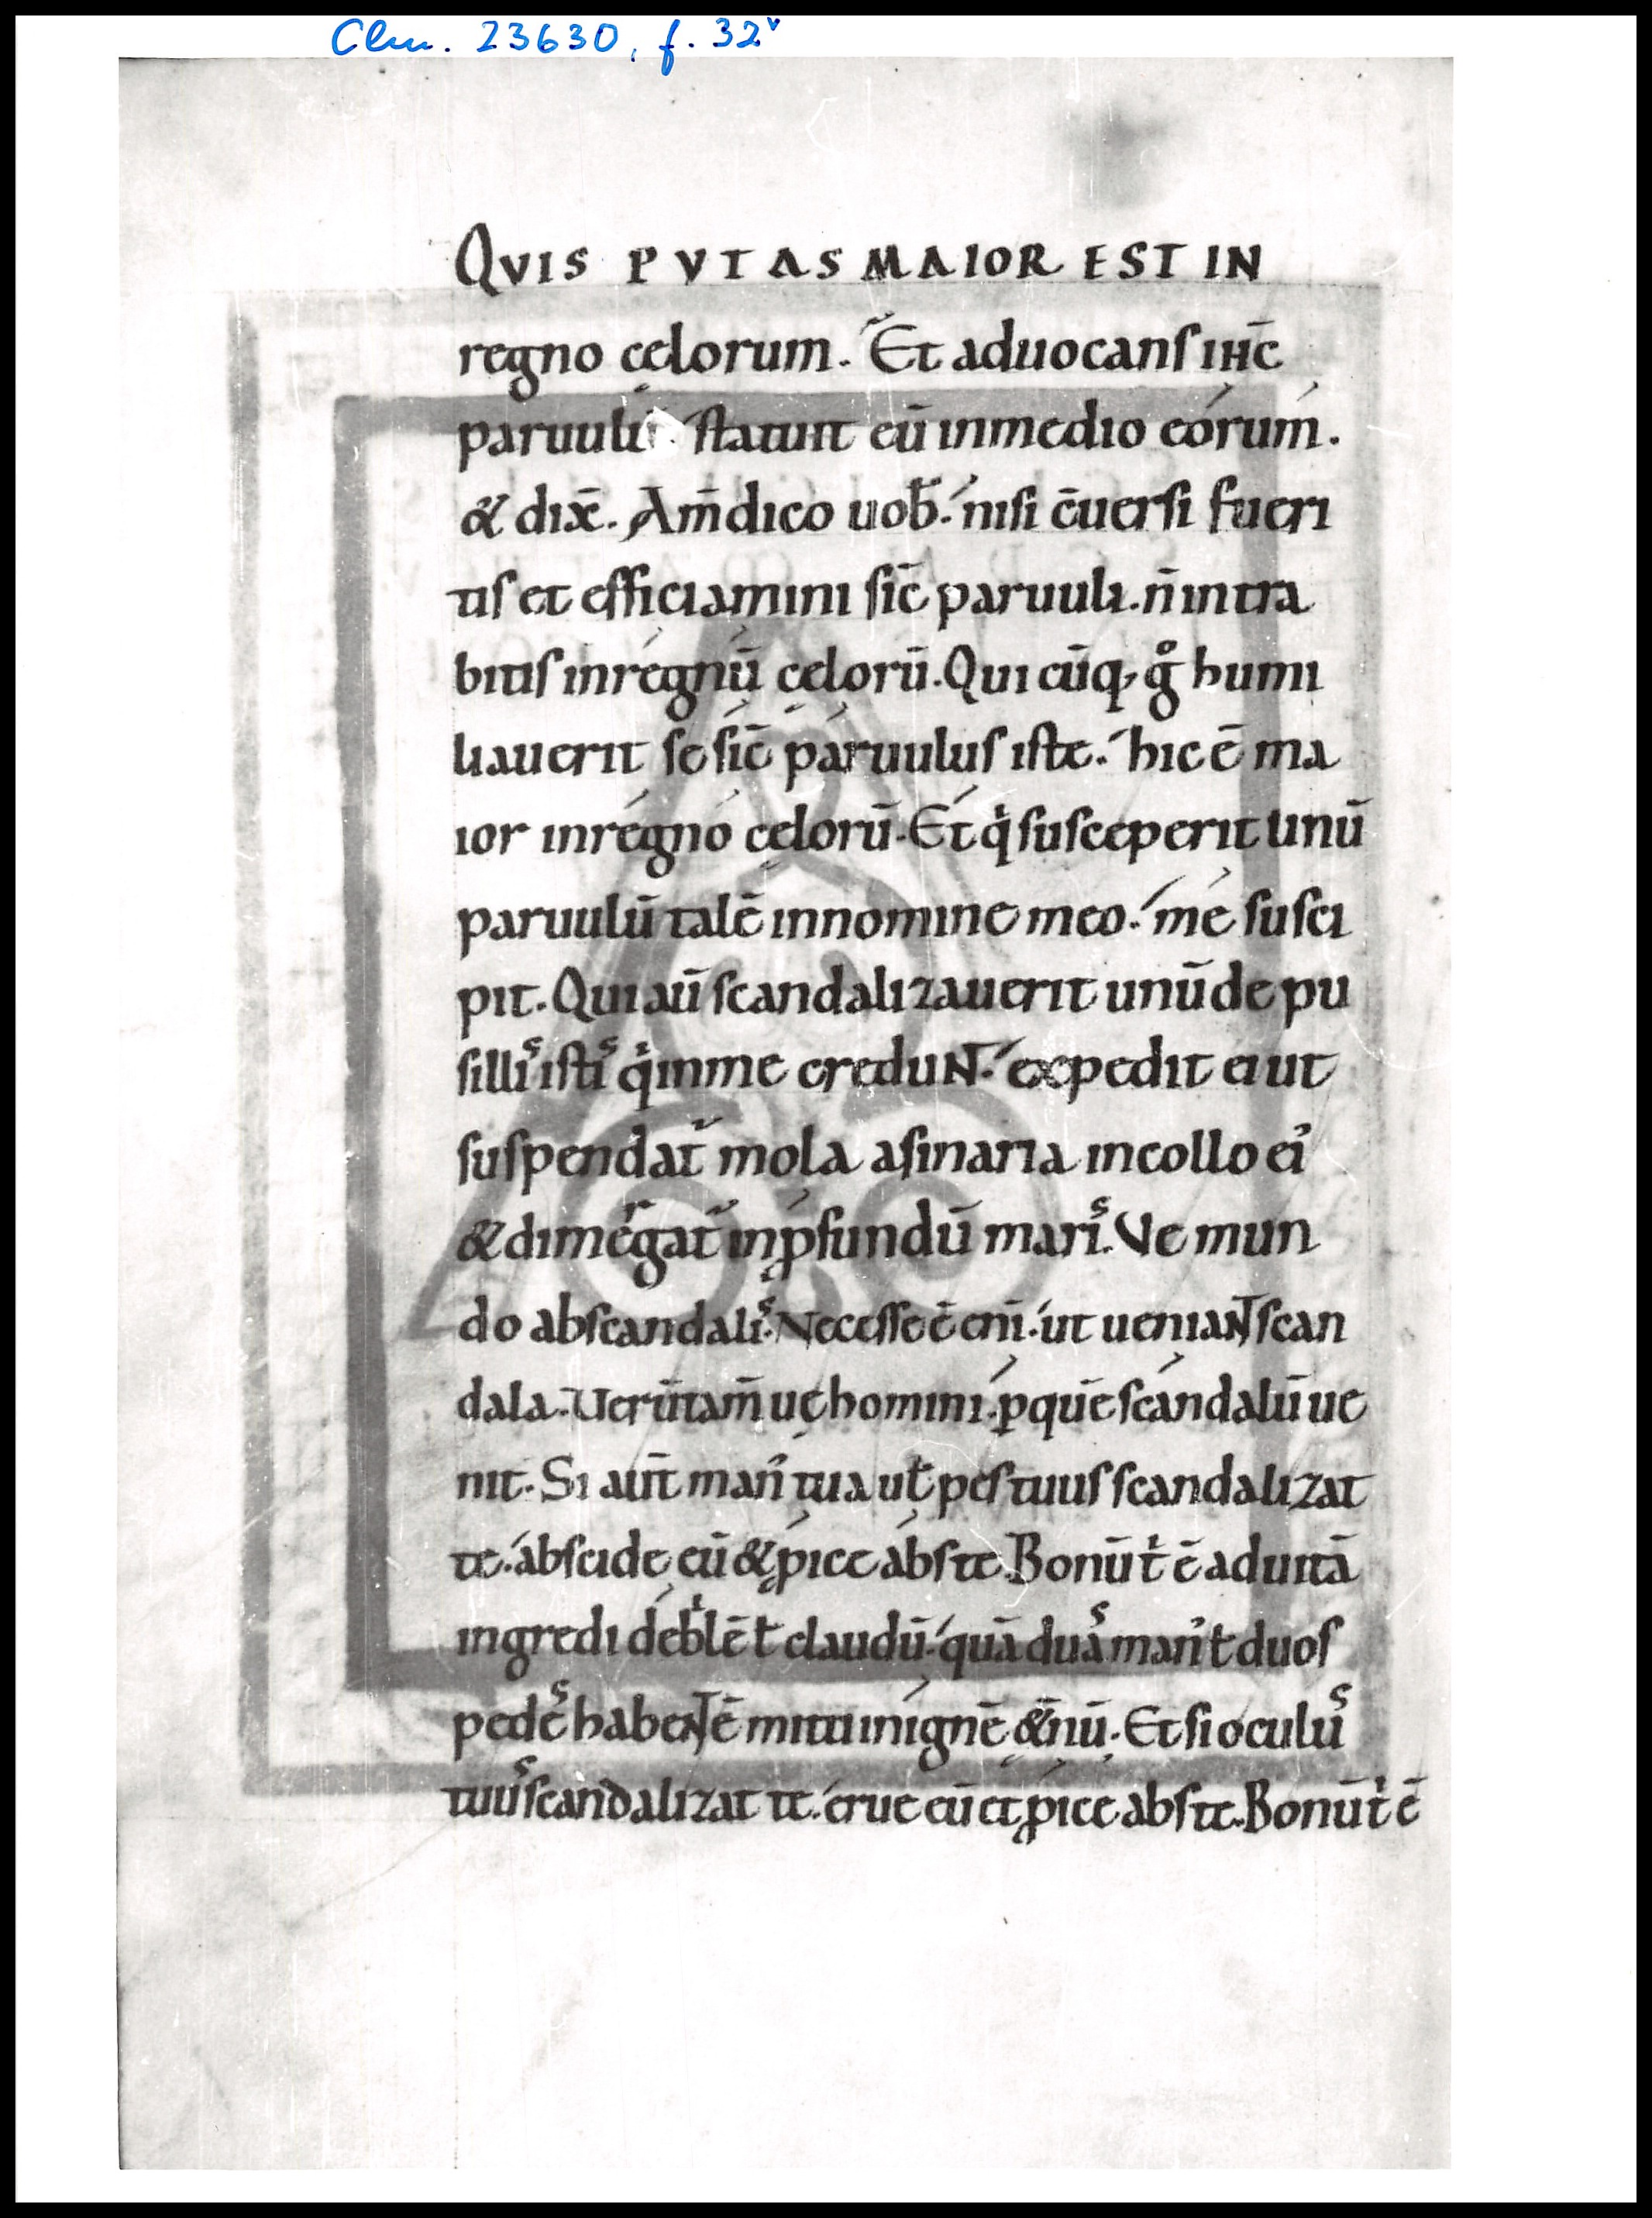 Clm. 23630, f. 32v
QVIS PVTAS MAIOR EST IN
regno cęlorum. Et aduocans ihc̄
paruulū statuit eū in medio eorum.
& dix̄. Am̄ dico uob̄. nisi c̄uersi fueri
tis et efficiamini sic̄ paruuli. n̄ intra
bitis in regnū cęlorū. Qui cūq, gͦ humi
liauerit se sic̄ paruulus iste. hic ē ma
ior in regno cęlorū. Et qⁱ susceperit unū
paruulū talē in nomine meo. me susci
pit. Qui aū scandalizauerit unū de pu
silliˢ istiˢ qⁱ in me credunt. expedit ei ut
suspendat᷑ mola asinaria in collo ei᾽
& dimeʳgat᷑ in ꝓfundū mariˢ. Ve mun
do ab scandaliˢ. Necesse ē eni̅. ut ueniant scan
dala. Uerūtam̄ uę homini. ꝑ quē scandalū ue
nit. Si aut̄ man᾽ tua ut̵ pes tuus scandalizat
te. abscide eū & ꝓice abs te. Bonū tⁱ ē ad uitā
ingredi debⁱlē t̵ claudū. quā duaˢ man᾽ t̵ duos
pedeˢ habentē mitti in ignē &̄nū. Et si oculuˢ
tuuˢ scandalizat te. erue eū et ꝓice abs te. Bonū tⁱ ē